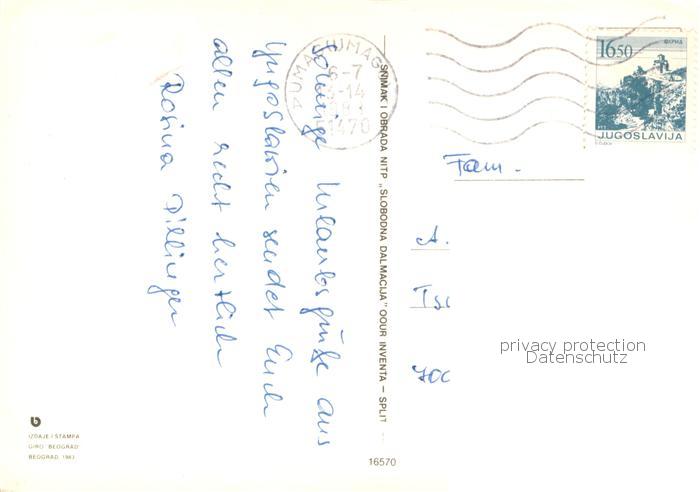 Sonnige Urlaubsgrüße aus
Jugoslawien sendet Euch
allen recht herzlich
Rosina Dillinger
UMAG UMAG
6-7
-14
1470
SNIMAK I OBRADA NITP „SLOBODNA DALMACIJA" OOUR INVENTA – SPLIT
16570
16 50
JUGOSLAVIJA
Fam.
A.
privacy protection
Datenschutz
b
IZDAJE I ŠTAMPA
GIRO "BEOGRAD"
BEOGRAD, 1983